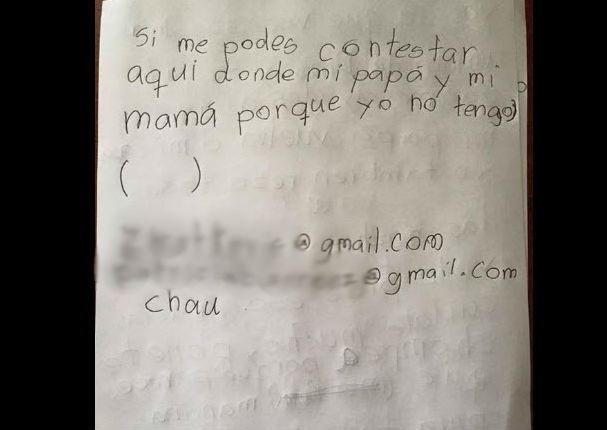 Si me podes contestar
aqui donde mi papá y mi
mamá porque yo no tengo
( )
@gmail.com
@gmail.com
chau